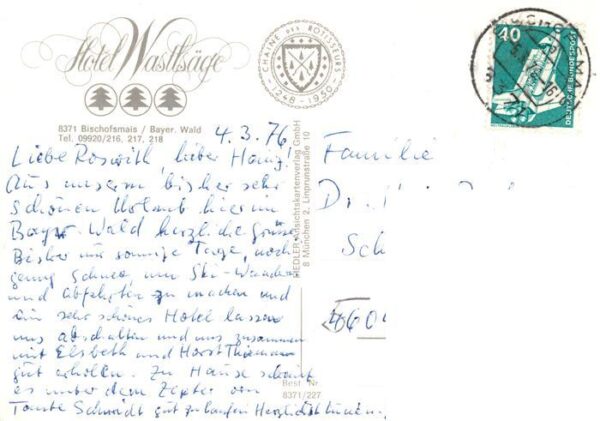 Hotel Wastlsäge
8371 Bischofsmais / Bayer. Wald
Tel. 09920/216, 217, 218
CHAINE DES ROTISSEURS
1248 - 1950
4.3.76
Liebe Roswith, lieber Hans!
Aus unserm bisher sehr
schönen Urlaub hier im
Bayr. Wald herzliche Grüße
Bisher nur sonnige Tage, noch
genug Schnee um Ski-Wandern
und abfahrten zu machen und
ein sehr schönes Hotel lassen
uns abschalten und uns zusammen
mit Elsbeth und Horst
gut erholen. Zu Hause scheint
es unter dem Zepter von
Tante Schmidt gut zu laufen Herzlichst
HEDLER Ansichtskartenverlag GmbH
8 München 2, Linprunstraße 10
Best Nr
8371/227
40
DEUTSCHE BUNDESPOST
Familie
Dr.
Sch
660